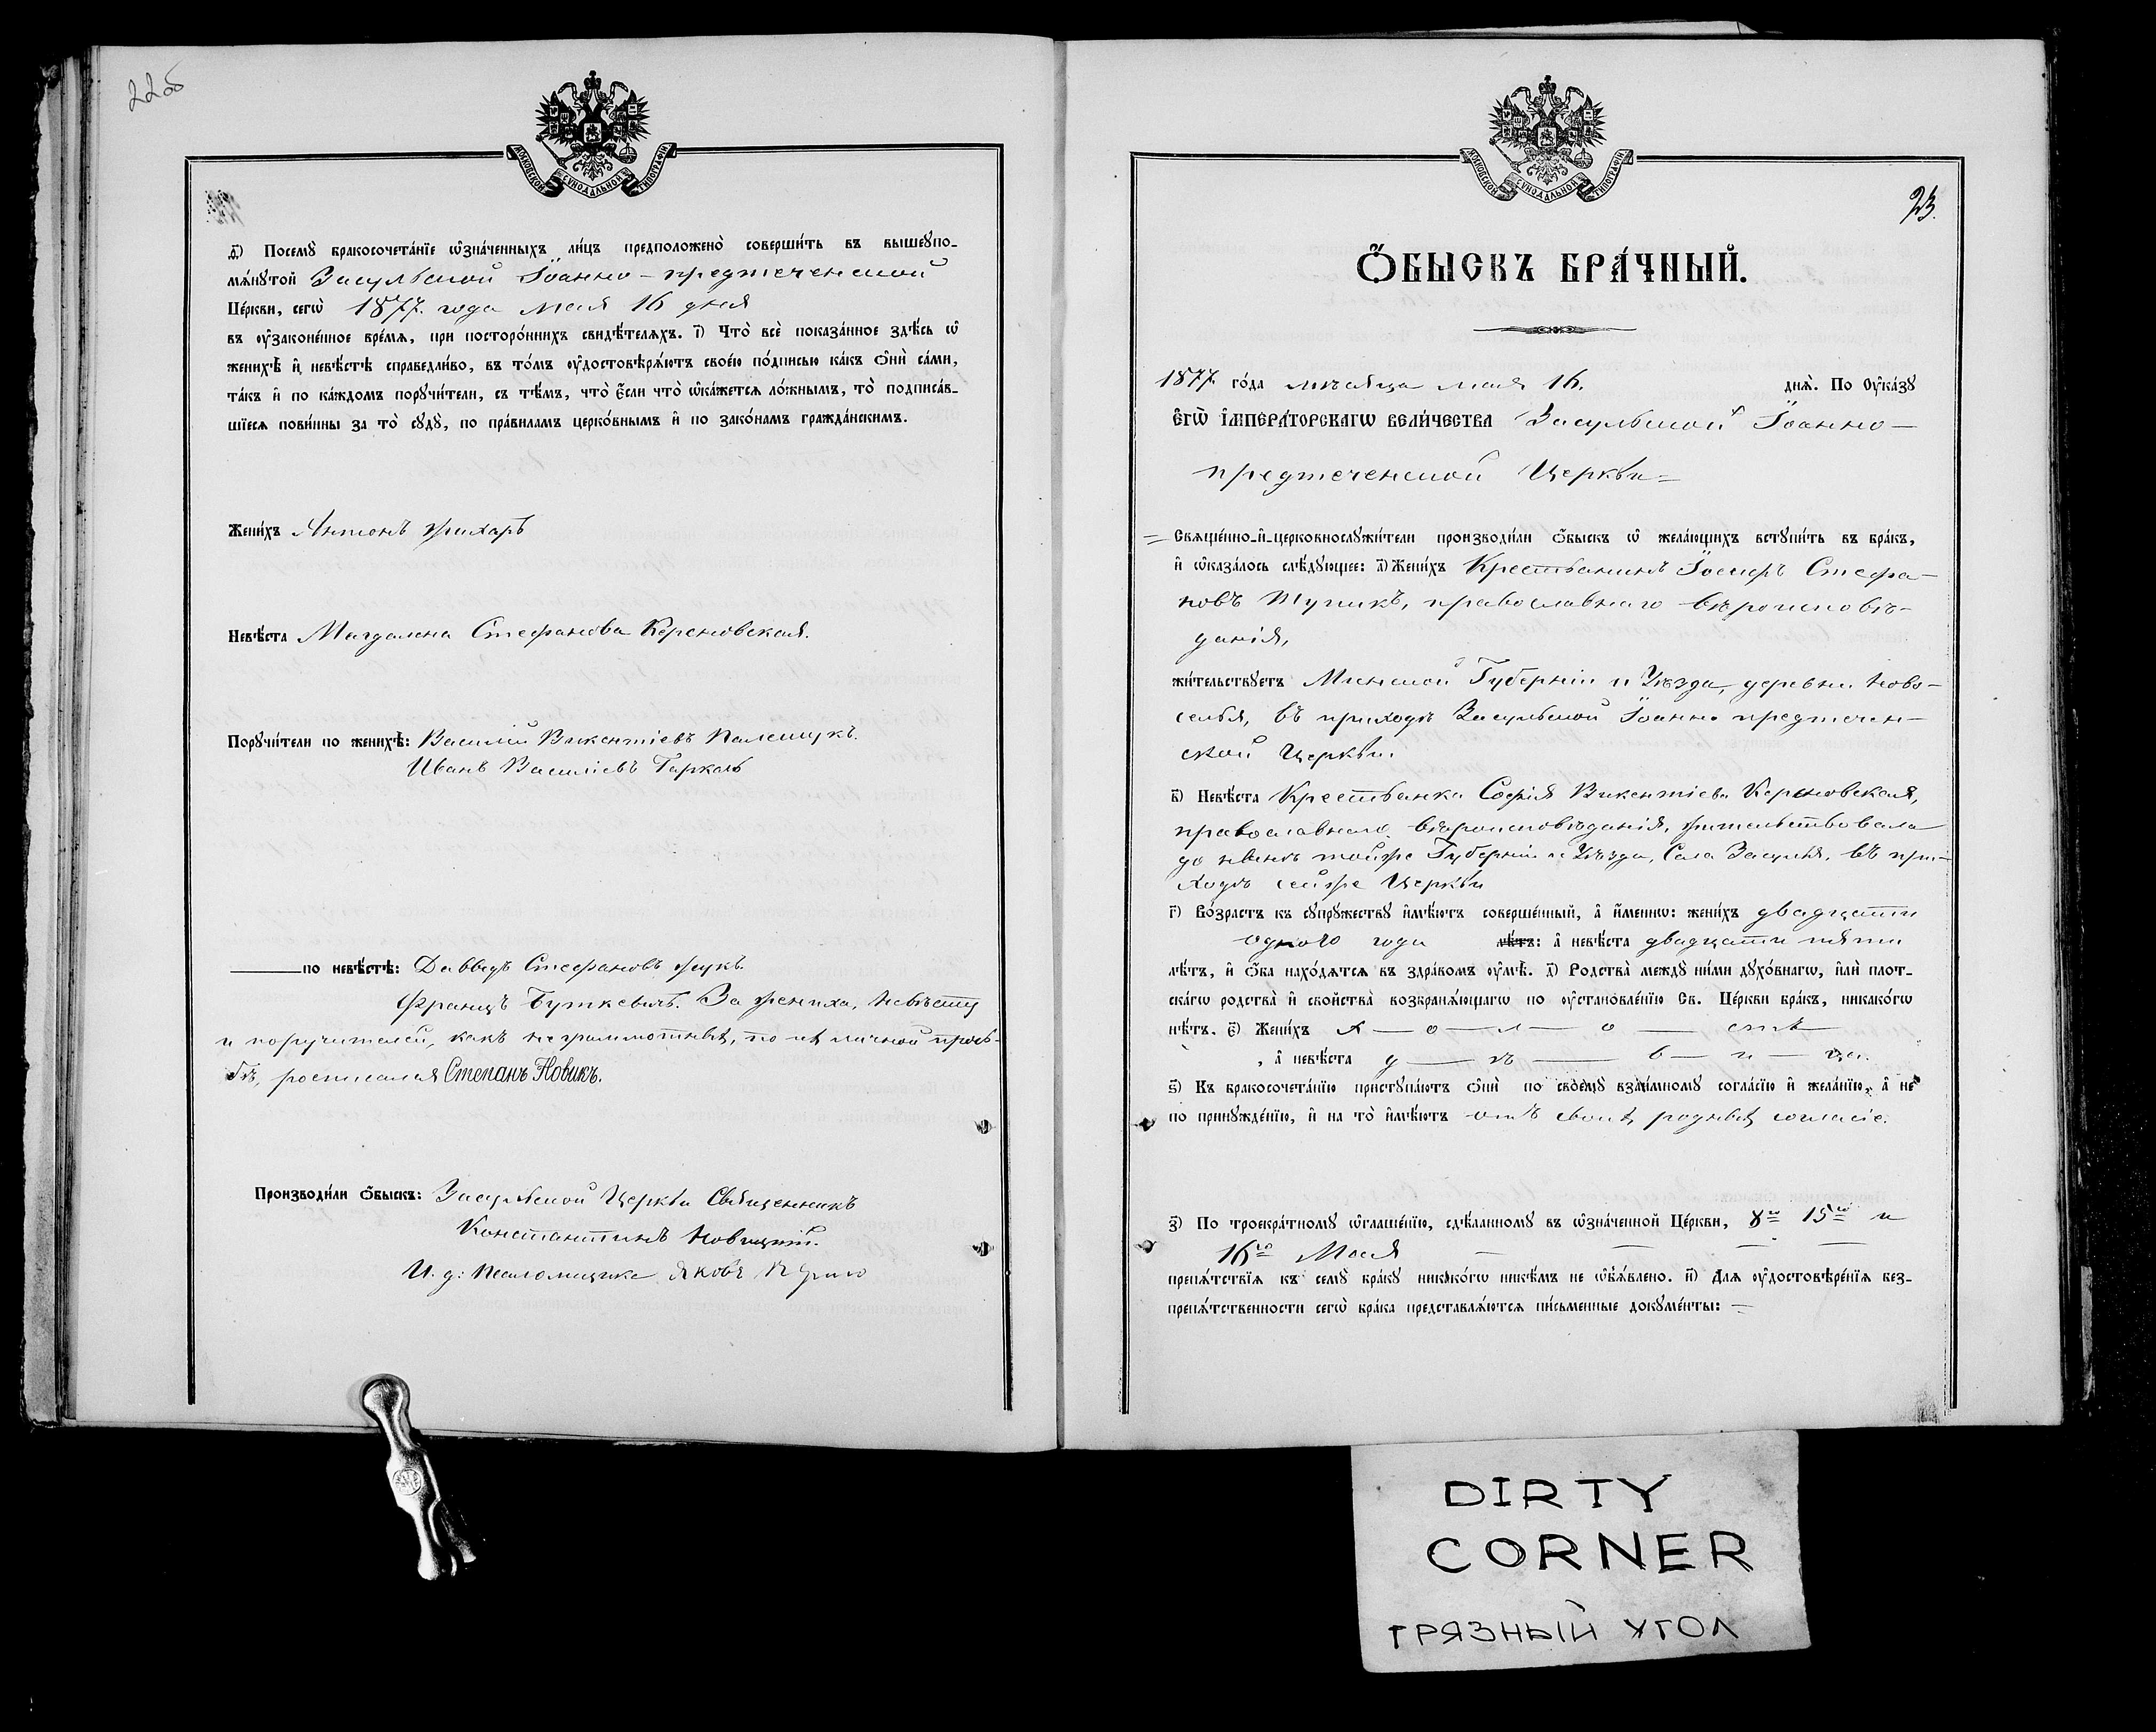 22об
МОСКОВСКОЙ СѴНОДАЛЬНОЙ ТИПОГРАФІИ
Ѳ҃) Посемꙋ̀ бракосочета́нїе ѡ҆зна́ченныхъ ли́цъ предположено̀ соверши́ть въ вышеꙋпо-
мѧ́нꙋтой Засульской Іоанно-предтеченской
Це́ркви, сегѡ̀ 1877. года Мая 16 дня
въ ᲂу҆законе́нное вре́мѧ, при посторо́ннихъ свидѣ́телѧхъ. і҃) Что̀ всѐ пока́занное здѣ́сь ѡ҆
женихѣ̀ и҆ невѣ́стѣ справедли́во, въ то́мъ ᲂу҆достовѣрѧ́ютъ свое́ю по́дписью ка́къ ѻ҆нѝ са́ми,
та́къ и҆ по ка́ждомъ порꙋчи́тели, съ тѣ́мъ, что̀ є҆́сли что̀ ѡ҆ка́жетсѧ ло́жнымъ, то̀ подписа́в-
шїесѧ пови́нны за то̀ сꙋдꙋ̀, по пра́виламъ церко́внымъ и҆ по зако́намъ гражда́нскимъ.
Жени́хъ Антонъ
Невѣ́ста Магдалена Стефанова Керножовская.
Порꙋчи́тели по женихѣ̀: Василій Викентіевъ Палещукъ.
Иванъ Василіевъ Гаркаль
по невѣ́стѣ: Даввидъ Стефановъ Жукъ.
Францъ Буткевичъ. За жениха, невѣсту
и поручителей, какъ неграмотныхъ, по ихъ личной прозь-
бѣ, росписался Степанъ Новикъ.
Производи́ли ѻ҆́быскъ: Засульской Церкви Священникъ
Константинъ Новицкій.
И. д: Псаломщика Яковъ
МОСКОВСКОЙ СѴНОДАЛЬНОЙ ТИПОГРАФІИ
23.
Ѻ҆́БЫСКЪ БРА́ЧНЫЙ.
1877. го́да мѣсяца мая 16. днѧ̀. По Оу҆ка́зꙋ
Є҆ГѠ̀ И҆МПЕРА́ТОРСКАГѠ ВЕЛИ́ЧЕСТВА Засульской Іоанно-
предтеченской Церкви=
= Свѧще́нно-и҆-церковнослꙋжи́тели производи́ли ѻ҆́быскъ ѡ҆ жела́ющихъ встꙋпи́ть въ бра́къ,
и҆ ѡ҆каза́лось слѣ́дꙋющее: а҃) Жени́хъ Крестьянинъ Іосифъ Стефа-
новъ Тупикъ, православнаго вѣроисповѣ-
данія,
жи́тельствꙋетъ Минской Губерніи и Уѣзда, деревни Ново-
селья, въ приходѣ Засульской Іоанно предтечен-
ской Церкви.
в҃) Невѣ́ста Крестьянка Софія Викентіева Керножовская,
православнаго вѣроисповѣданія, жительствовала
до нынѣ тойже Губерніи и Уѣзда, Села Засулья, въ при-
ходѣ сейже Церкви
г҃) Во́зрастъ къ сꙋпрꙋ́жествꙋ и҆мѣ́ютъ соверше́нный, а҆ и҆́менно: жени́хъ двадцати
одного года лѣ́тъ: а҆ невѣ́ста двадцати пяти
лѣ́тъ, и҆ ѻ҆́ба нахо́дѧтсѧ въ здра́вомъ ᲂу҆мѣ̀. д҃) Родства̀ междꙋ̀ ни́ми дꙋхо́внагѡ, и҆лѝ плот-
ска́гѡ родства̀ и҆ свойства̀ возбранѧ́ющагѡ по ᲂу҆становле́нїю Св. Це́ркви бра́къ, никако́гѡ
нѣ́тъ. є҃) Жени́хъ х — о — л — о — стъ
, а҆ невѣ́ста д — ѣ — в — и — ца.
ѕ҃) Къ бракосочета́нїю пристꙋпа́ютъ ѻ҆нѝ по своемꙋ̀ взаи́мномꙋ согла́сїю и҆ жела́нїю, а҆ не
по принꙋжде́нїю, и҆ на то̀ и҆мѣ́ютъ отъ своихъ родныхъ согласіе.
з҃) По троекра́тномꙋ ѡ҆глаше́нїю, сдѣ́ланномꙋ въ ѡ҆зна́ченной Це́ркви, 8го 15го и
16го Мая
препѧ́тствїѧ къ семꙋ̀ бра́кꙋ никако́гѡ никѣ́мъ не ѡ҆б̾ѧ́влено. и҃) Длѧ ᲂу҆достовѣре́нїѧ без-
препѧ́тственности сегѡ̀ бра́ка представлѧ́ютсѧ пи́сьменные докꙋме́нты: =
DIRTY
CORNER
ГРЯЗНЫЙ УГОЛ